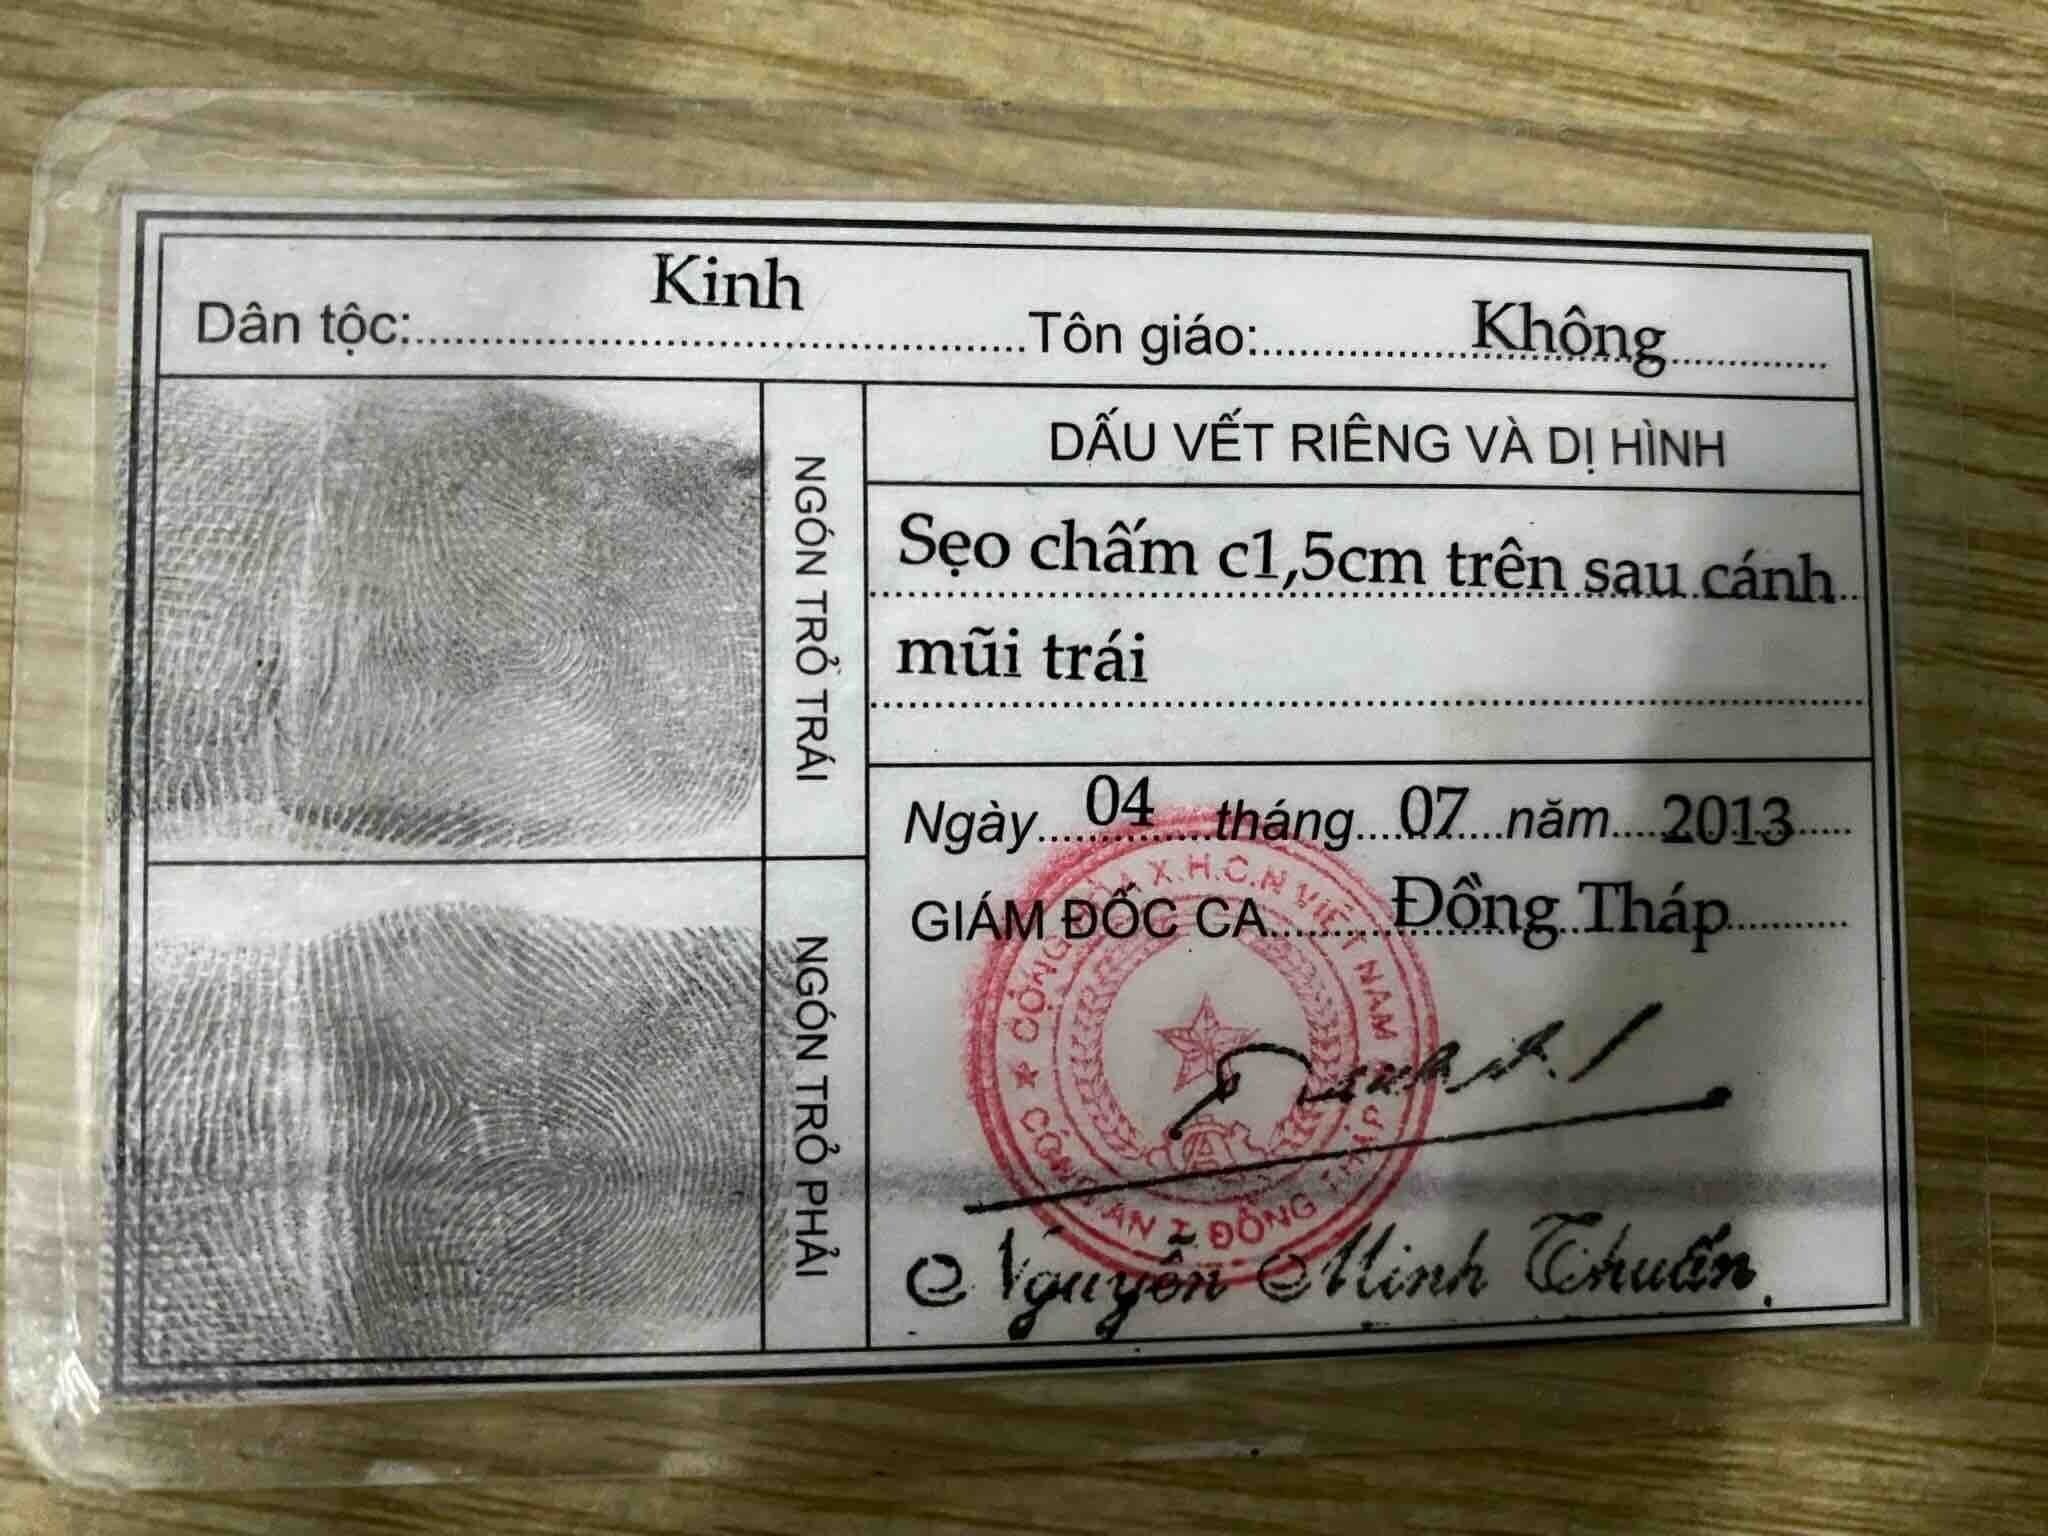 Dân tộc: Kinh Tôn giáo: Không
NGÓN TRỎ TRÁI
DẤU VẾT RIÊNG VÀ DỊ HÌNH
Sẹo chấm c1,5cm trên sau cánh
mũi trái
Ngày 04 tháng 07 năm 2013
GIÁM ĐỐC CA Đồng Tháp
CỘNG HÒA X.H.C.N VIỆT NAM
CÔNG AN T. ĐỒNG THÁP
Nguyễn Minh Thuấn
NGÓN TRỎ PHẢI